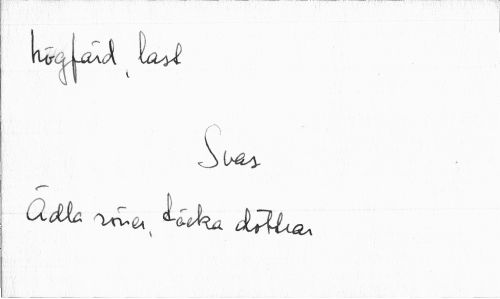 högfärd, last
Svar
Ädla söner, täcka döttrar